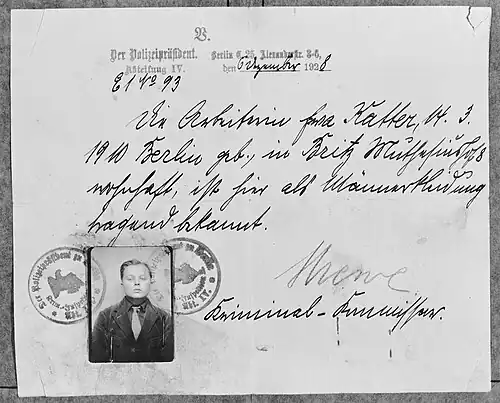 V.
Der Polizeipräsident.
Abteilung IV.
Berlin C. 25, Alexanderstr. 3-6,
den 6 Dezember 1928
E 1 No 93
Die Arbeiterin Eva Katter, 14. 3.
1910 Berlin geb., in Britz Muthesiushof 8
wohnhaft, ist hier als Männerkleidung
tragend bekannt.
Der Polizeipräsident zu
Abt. IV.
zu Berlin
Abt. IV.
Kriminal-Kommissar.